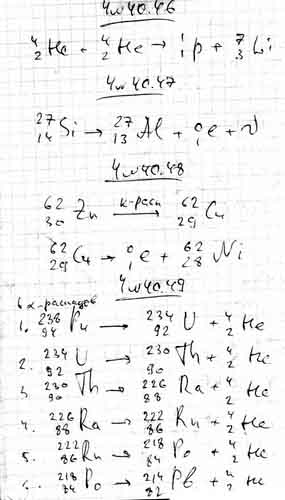 4и40.46
⁴₂He + ⁴₂He → ¹₁p + ⁷₃Li
4и40.47
²⁷₁₄Si → ²⁷₁₃Al + ⁰₁e + ν
4и40.48
⁶²₃₀Zn K-расп → ⁶²₂₉Cu
⁶²₂₉Cu → ⁰₁e + ⁶²₂₈Ni
4и40.49
6 α-распадов
1. ²³⁸₉₄Pu → ²³⁴₉₂U + ⁴₂He
2. ²³⁴₉₂U → ²³⁰₉₀Th + ⁴₂He
3. ²³⁰₉₀Th → ²²⁶₈₈Ra + ⁴₂He
4. ²²⁶₈₈Ra → ²²²₈₆Rn + ⁴₂He
5. ²²²₈₆Rn → ²¹⁸₈₄Po + ⁴₂He
6. ²¹⁸₈₄Po → ²¹⁴₈₂Pb + ⁴₂He